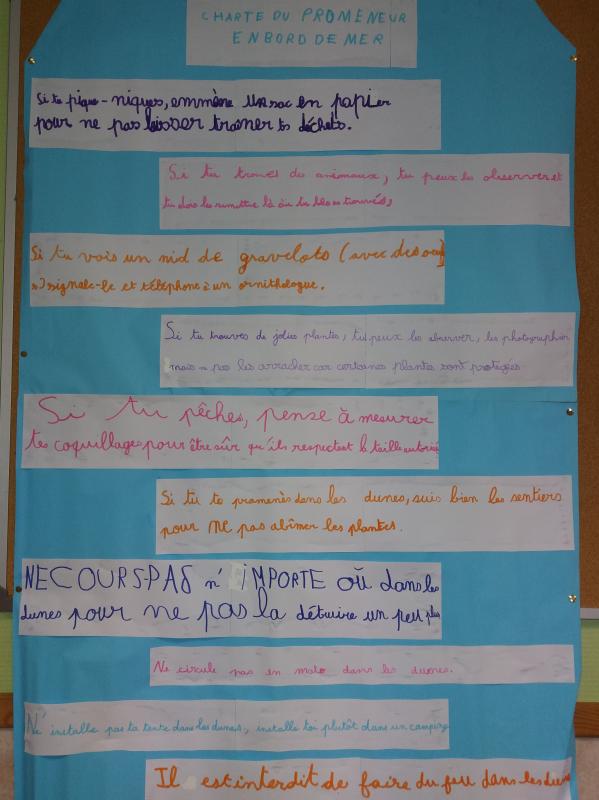 CHARTE DU PROMENEUR
EN BORD DE MER
Si tu pique-niques, emmène un sac en papier
pour ne pas laisser traîner ts déchets.
Si tu trouves des animaux, tu peux les observer et
tu dois les remettre là où tu les as trouvés,
Si tu vois un nid de gravelots (avec des oeuf
s) signale-le et téléphone à un ornithologue.
Si tu trouves de jolies plantes, tu peux les observer, les photographier
mais pas les arracher car certaines plantes sont protégées
Si tu pêches, pense à mesurer
tes coquillages pour être sûr qu'ils respectent la taille autorisé
Si tu te promenès dans les dunes, suis bien les sentiers
pour ne pas abîmer les plantes.
NE COURS PAS n'IMPORTE OÙ dans les
dunes pour ne pas la détruire un peu plus
Ne circule pas en moto dans les dunes.
N'installe pas ta tente dans les dunes, installe toi plutôt dans un camping
Il est interdit de faire du feu dans les dunes